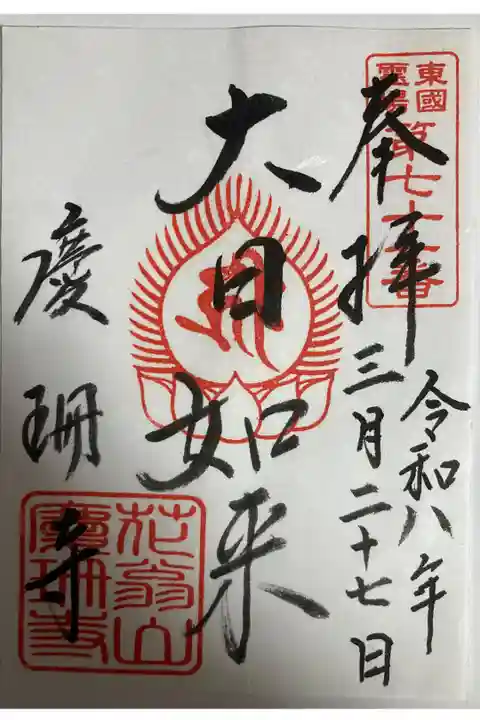 東國
靈場
第七十番
奉拜
令和八年
三月二十七日
大日如来
慶珊寺
花翁山
慶珊寺